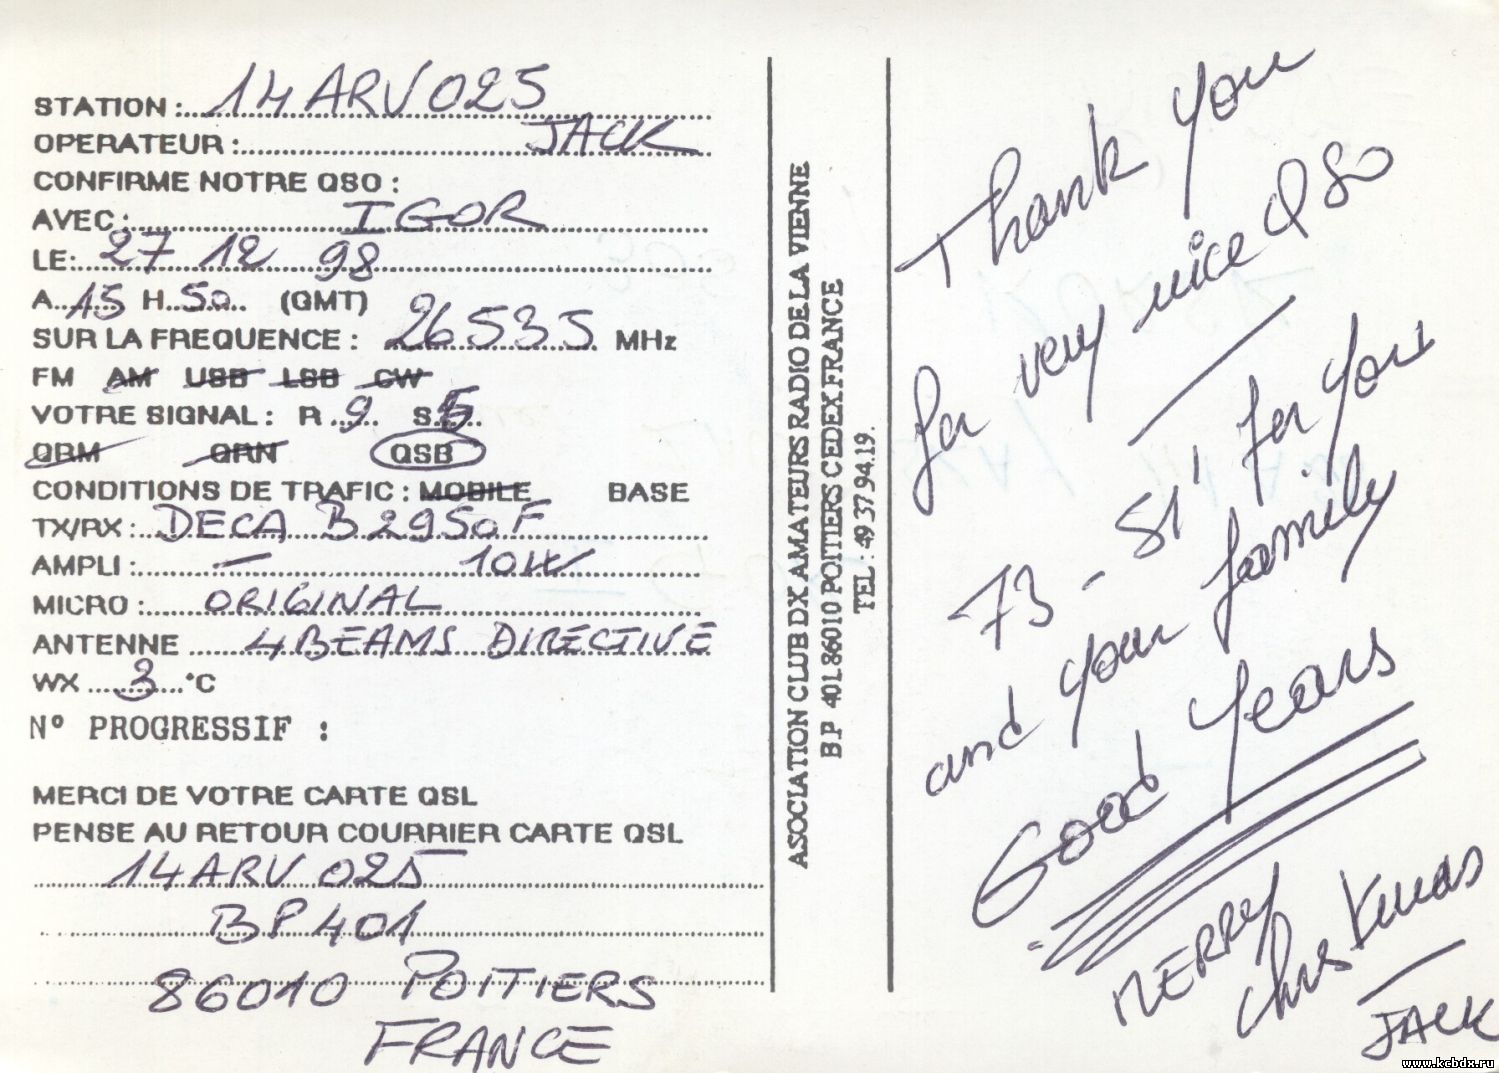 STATION : 14 ARV 025
OPERATEUR : JACK
CONFIRME NOTRE QSO :
AVEC : IGOR
LE: 27 12 98
A 15 H 50 (GMT)
SUR LA FREQUENCE : 26535 MHz
FM AM USB LSB CW
VOTRE SIGNAL : R 9 S 5
QRM QRN QSB
CONDITIONS DE TRAFIC : MOBILE BASE
TX/RX : DECA B 2950F
AMPLI : — 10W
MICRO : ORIGINAL
ANTENNE 4 BEAMS DIRECTIVE
WX 3 °C
N° PROGRESSIF :
MERCI DE VOTRE CARTE QSL
PENSE AU RETOUR COURRIER CARTE QSL
14 ARV 025
BP 401
86010 POITIERS
FRANCE
ASOCIATION CLUB DX AMATEURS RADIO DE LA VIENNE
BP 401 86010 POITIERS CEDEX FRANCE
TEL : 49 37 94.19.
Thank You
for very nice QSO
73 - 51' for you
and your family
Good Years
MERRY
Christmas
JACK
www.kcbdx.ru